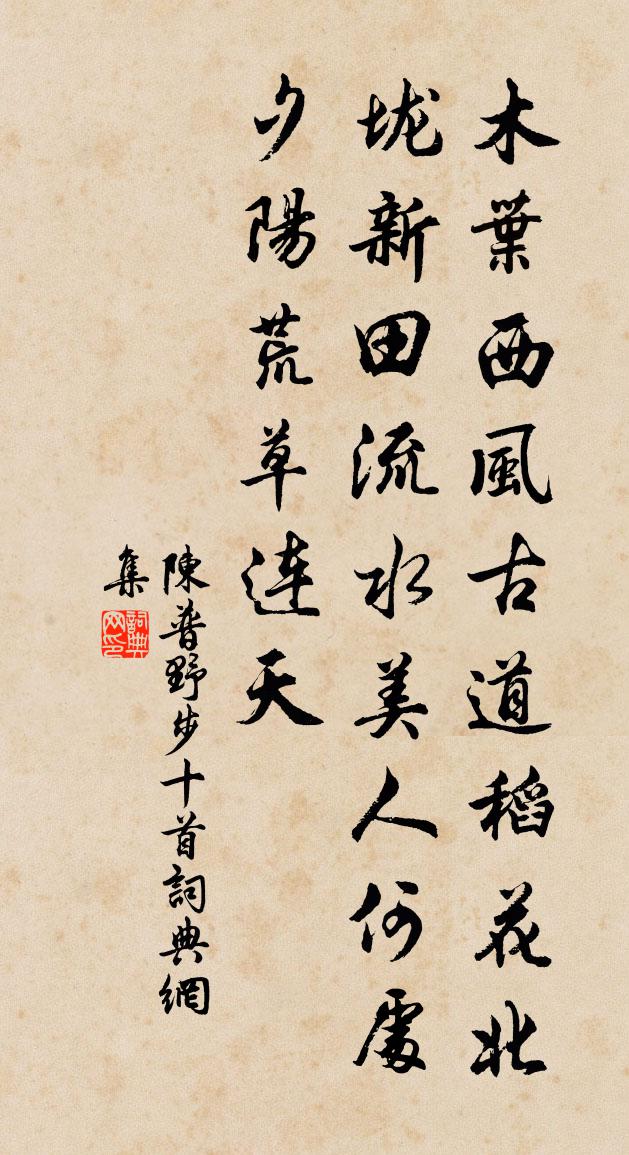 木葉西風古道稻花北
垅新田流水美人何處
夕陽荒草連天
陳普野步十首詞典網
集
詞典網印